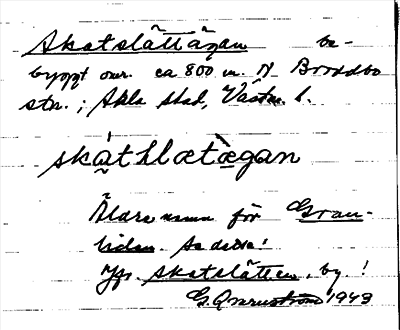 Skatslåttägan be-
byggt omr. ca 800 m. N Broddbo
stn.; Sala stad, Västm. l.
skàthlætægan
Äldre namn för Gran-
liden. Se detta!
Jfr. Skatslåtten, by!
G. Qvarnström 1943